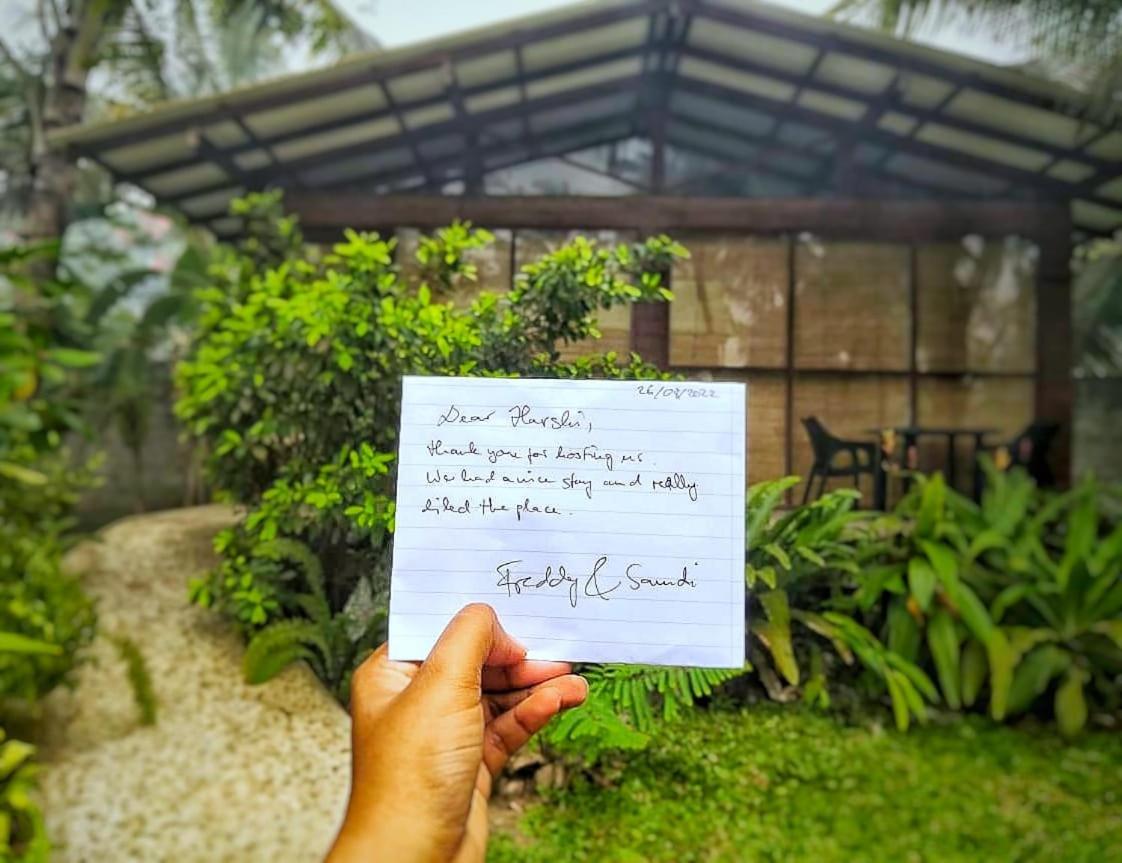 26/08/2022
Dear Harshi,
thank you for hosting us.
We had a nice stay and really
liked the place.
Freddy & Saundi